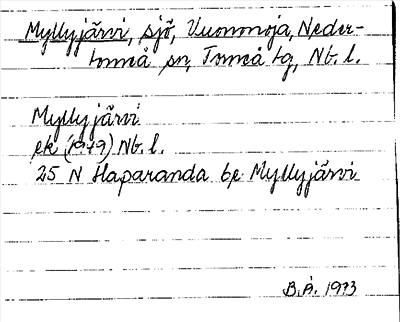 Myllyjärvi, sjö, Vuononoja, Neder-
torneå sn, Torneå tg, Nb. l.
Myllyjärvi
ek (1979) Nb. l.
25 N Haparanda be Myllyjärvi
B.Å. 1973